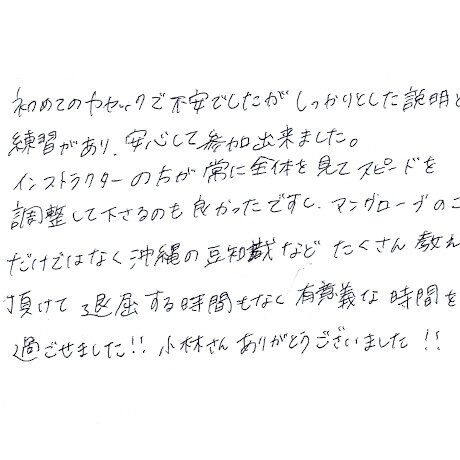 初めてのカヤックで不安でしたがしっかりとした説明と
練習があり、安心して参加出来ました。
インストラクターの方が常に全体を見てスピードを
調整して下さるのも良かったですし、マングローブのこ
だけではなく沖縄の豆知識などたくさん教え
頂けて退屈する時間もなく有意義な時間を
過ごせました!! 小林さんありがとうございました!!